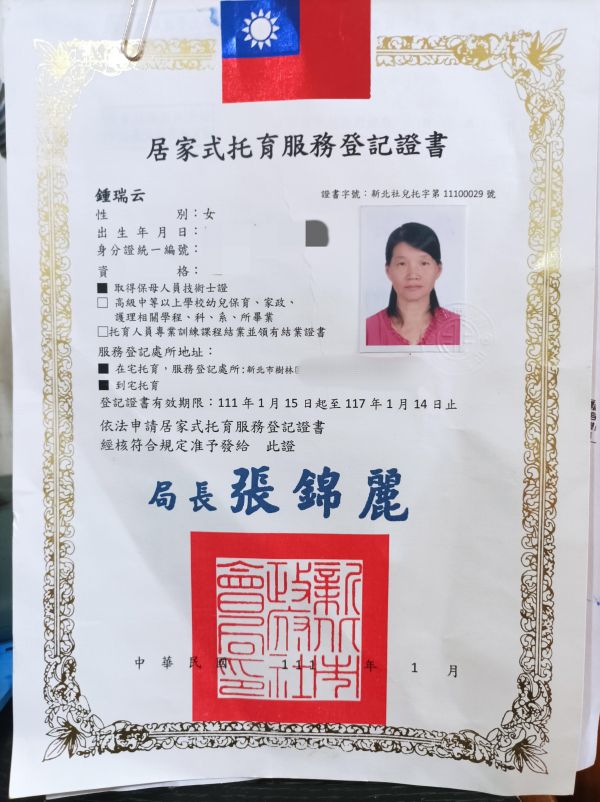 居家式托育服務登記證書
鍾瑞云
證書字號：新北社兒托字第11100029號
性別：女
出生年月日：
身分證統一編號：
資格：
■ 取得保母人員技術士證
□ 高級中等以上學校幼兒保育、家政、
護理相關學程、科、系、所畢業
□托育人員專業訓練課程結業並領有結業證書
服務登記處所地址：
■ 在宅托育，服務登記處所:新北市樹林
■ 到宅托育
登記證書有效期限：111年1月15日起至117年1月14日止
依法申請居家式托育服務登記證書
經核符合規定准予發給 此證
局長 張錦麗
新北市政府社會局印
中華民國 111 年 1 月